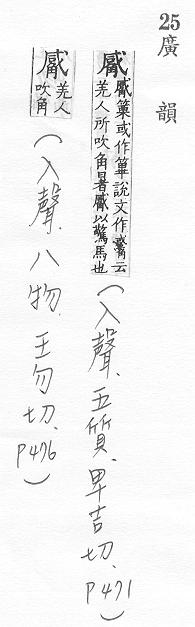 25
廣韻
觱
觱篥或作篳說文作云
羌人所吹角屠觱以驚馬也
(入聲、五質、卑吉切、P471)
觱
羌人
吹角
(入聲、八物、王勿切、P476)